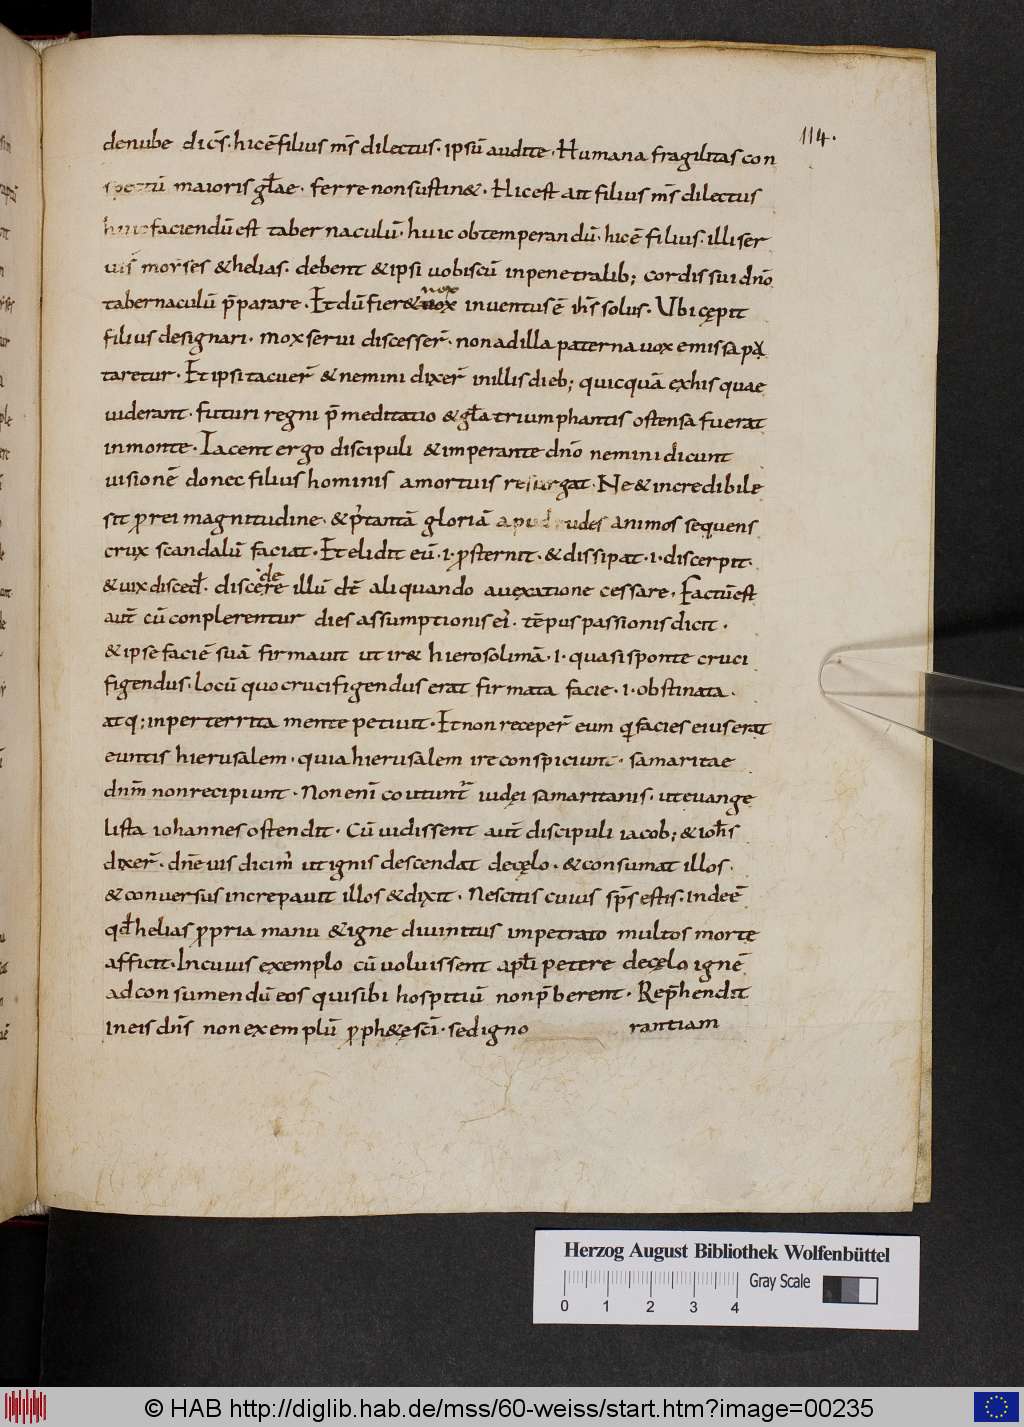 114.
denube dic̄s· hicē filius m̄s dilectus· ipsū audite· Humana fragilitas con
spectū maioris gl̄ae· ferre non sustin&· Hic est ait filius m̄s dilectus
huic faciendū est tabernaculū· huic obtemperandū· hic ē filius· illi ser
uis moyses & helias· debent & ipsi uobiscū in penetralib; cordis sui dn̄o
tabernaculū p̄parare· Et dū fier& uox inuentus ē ih̄s solus· Ubi cępit
uox
filius designari· mox serui discesser̄· non ad illa paterna uox emissa pu
taretur· Et ipsi tacuer̄ & nemini dixer̄ in illis dieb; quicquā ex his quae
uiderant· futuri regni p̄meditatio & gl̄a triumphantis ostensa fuerat
in monte· Iacent ergo discipuli & imperante dn̄o nemini dicunt
uisionē donec filius hominis a mortuis resurgat· Ne & incredibile
sit p̱ rei magnitudine· & p̄ tantā gloriā apud rudes animos sequens
crux scandalū faciat· Et elidit eū· i· ꝓsternit· & dissipat· i· discerpit·
& uix disced̄· discere illū dē aliquando a uexatione cessare· Factū est
de
aut̄ cū conplerentur dies assumptionis ei̓· tēpus passionis dicit·
& ipse faciē suā firmauit ut ir& hierosolimā· i· quasi sponte cruci
figendus· locū quo crucifigendus erat firmata facie· i· obstinata·
atq; inperterrita mente petiuit· Et non receper̄ eum q̱ facies eius erat
euntis hierusalem· quia hierusalem ire conspiciunt· samaritae
dnm̄ non recipiunt· Non enī coutunt̄ iudęi samaritanis· ut euange
lista iohannes ostendit· Cū uidissent aut̄ discipuli iacob; & ioh̄s
dixer̄· dn̄e uis dicim̓ ut ignis descendat de cęlo· & consumat illos·
& conuersus increpauit illos & dixit· Nescitis cuius sp̄s estis· inde ē
qđ helias ꝓpria manu & igne diuinitus impetrato multos morte
afficit· In cuius exemplo cū uoluissent apl̄i petere de cęlo ignē
ad consumendū eos qui sibi hospitiū non p̄berent· Rep̄hendit
in eis dn̄s non exemplū ꝓph&ę sc̄i· sed igno rantiam
Herzog August Bibliothek Wolfenbüttel
0 1 2 3 4 Gray Scale
© HAB http://diglib.hab.de/mss/60-weiss/start.htm?image=00235